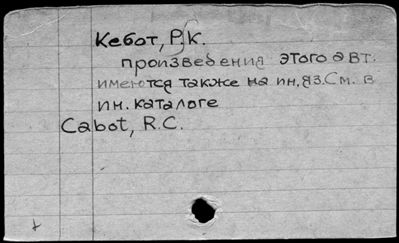 Кебот, Р.К.
произведения этого авт.
имеются также на ин.яз.См. в
ин. каталоге
Cabot, R.C.